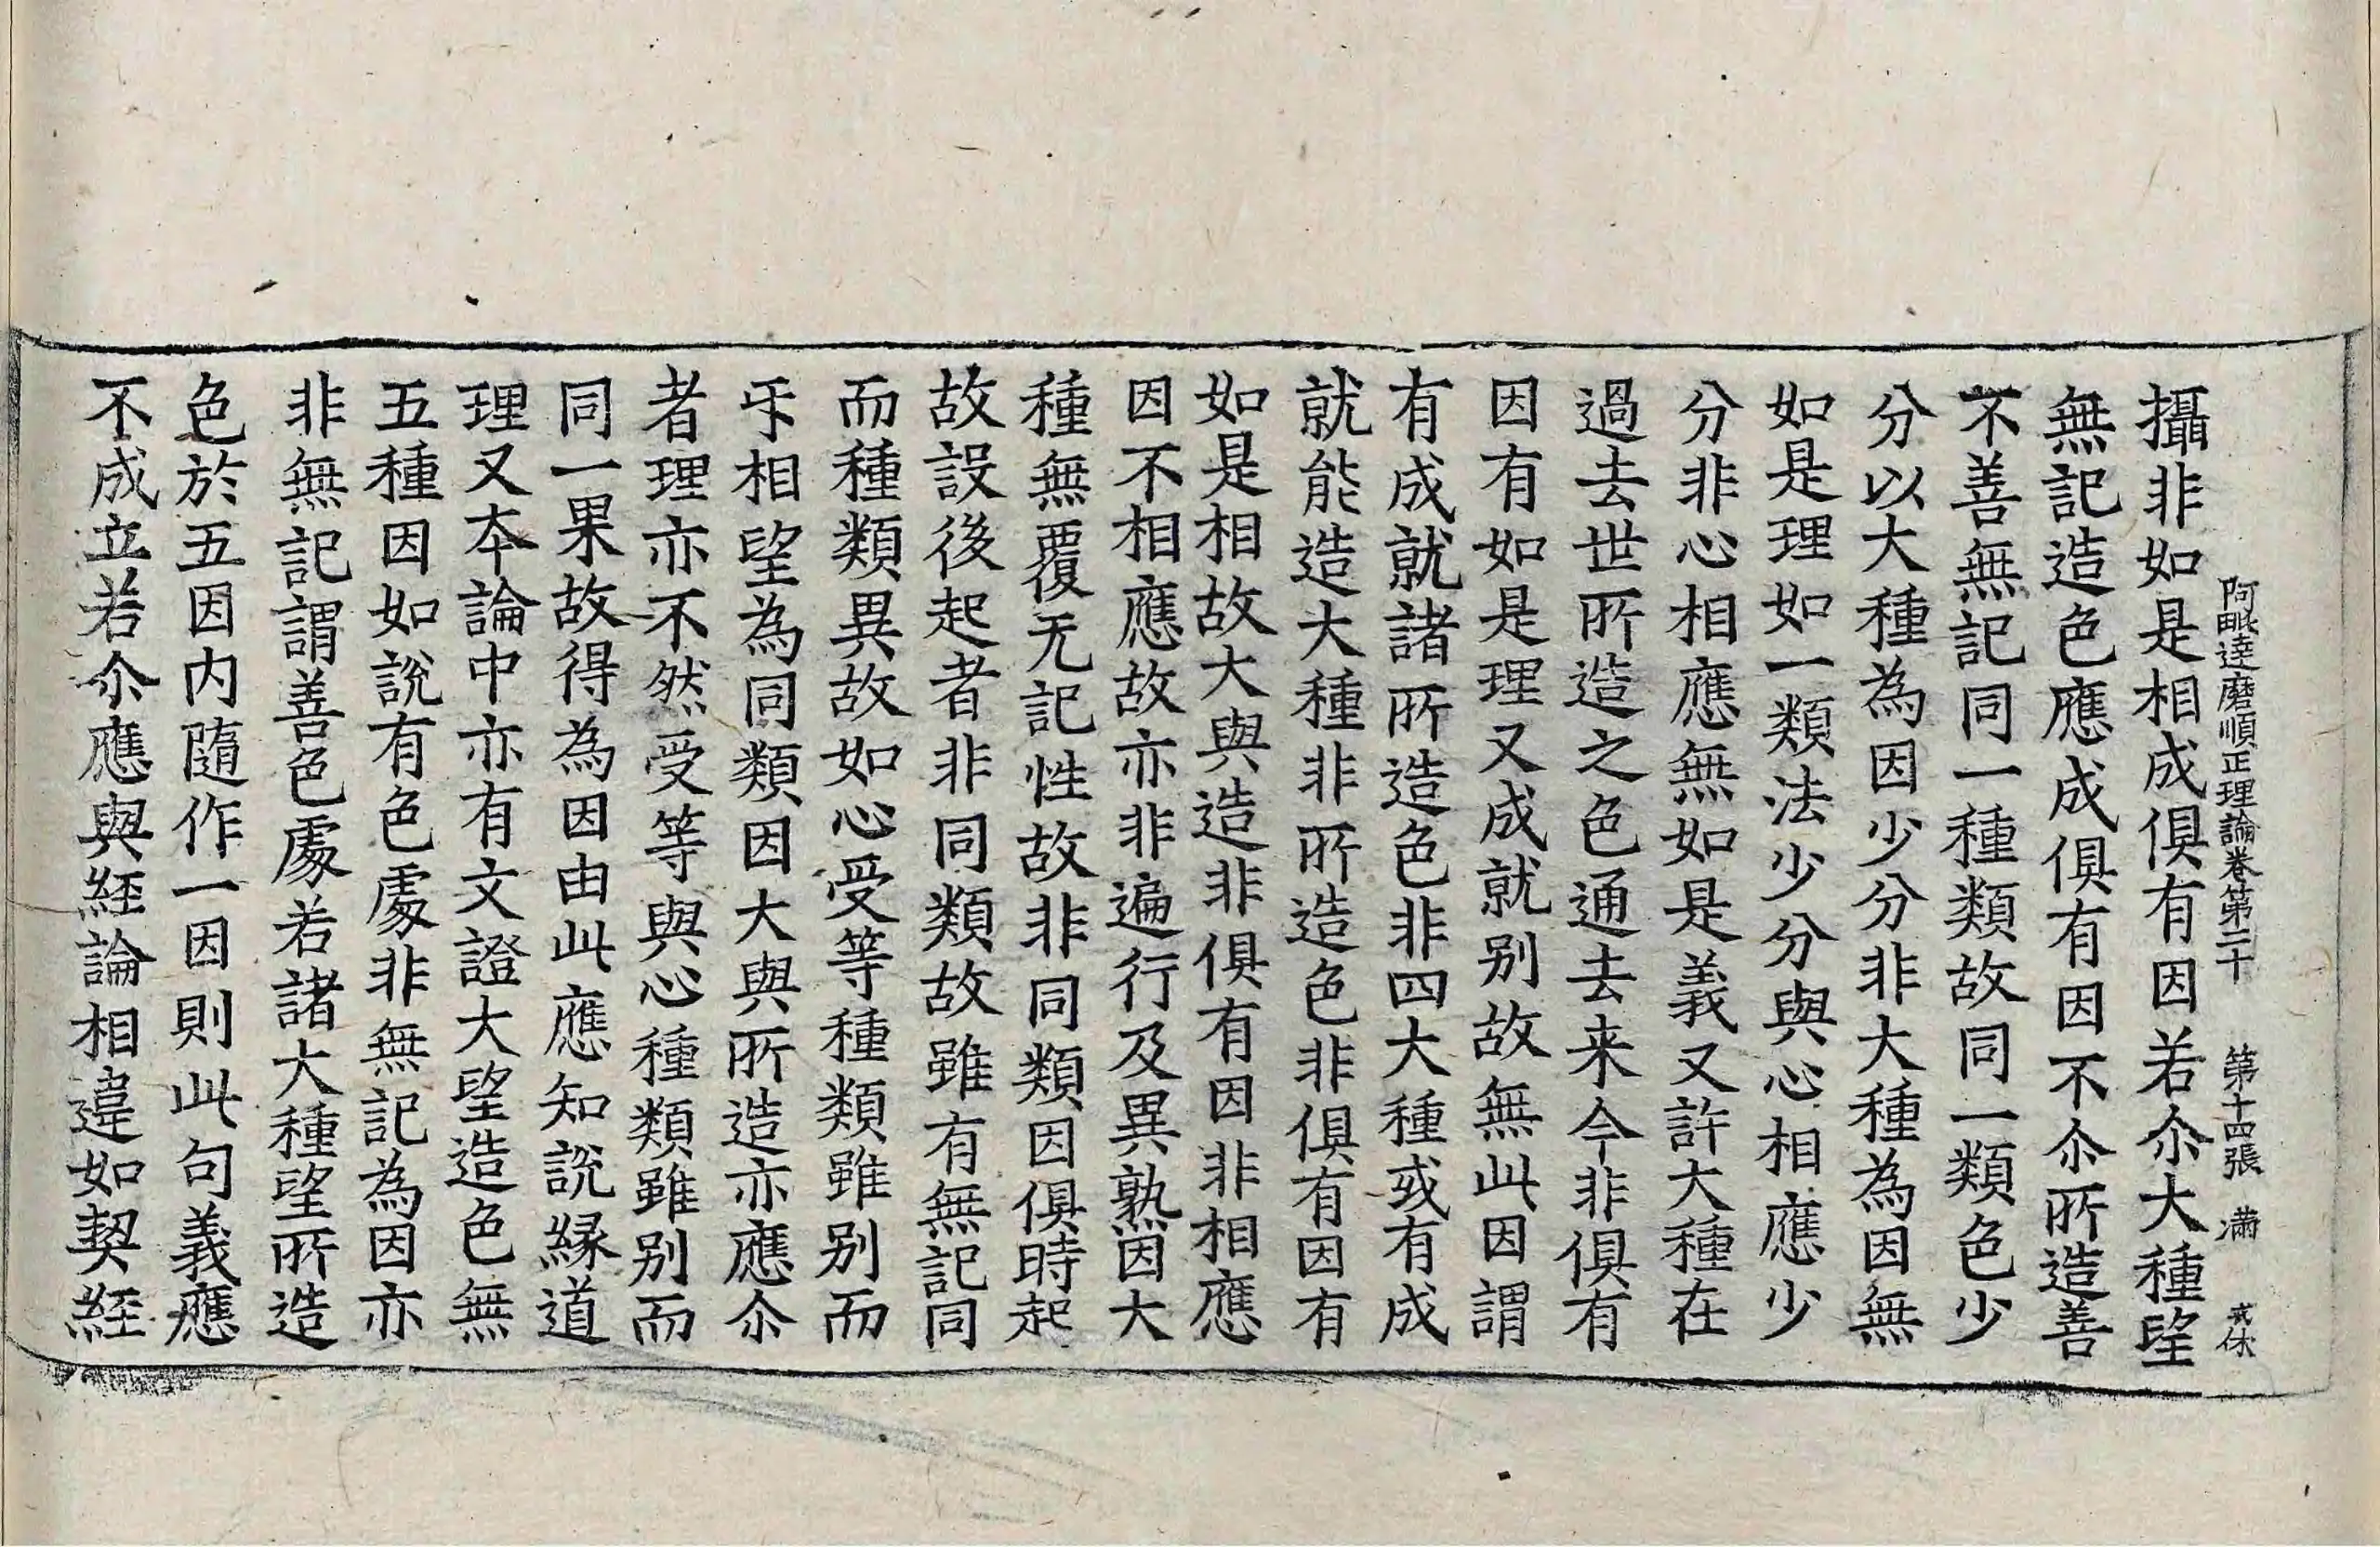 阿毗達磨順正理論卷第二十　第十四張　滿
攝非如是相成俱有因若尒大種望
無記造色應成俱有因不尒所造善
不善無記同一種類故同一類色少
分以大種為因少分非大種為因無
如是理如一類法少分與心相應少
分非心相應無如是義又許大種在
過去世所造之色通去来今非俱有
因有如是理又成就别故無此因謂
有成就諸所造色非四大種或有成
就能造大種非所造色非俱有因有
如是相故大與造非俱有因非相應
因不相應故亦非遍行及異熟因大
種無覆无記性故非同類因俱時起
故設後起者非同類故雖有無記同
而種類異故如心受等種類雖别而
㸦相望為同類因大與所造亦應尒
者理亦不然受等與心種類雖别而
同一果故得為因由此應知說緣道
理又本論中亦有文證大望造色無
五種因如說有色處非無記為因亦
非無記謂善色處若諸大種望所造
色於五因内隨作一因則此句義應
不成立若尒應與経論相違如契経